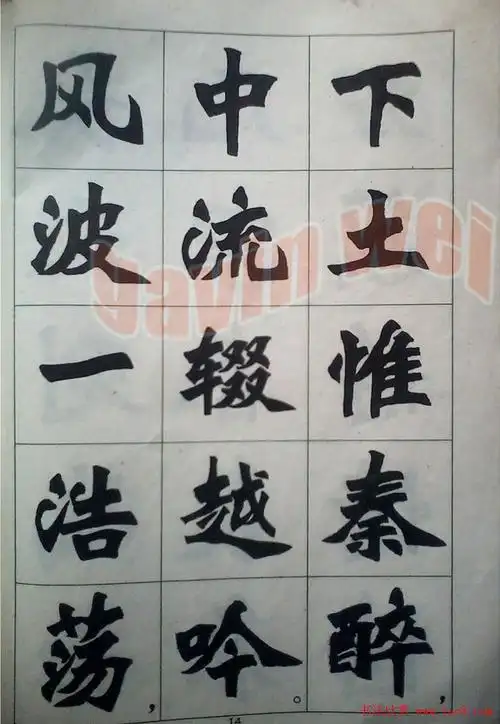 下土惟秦醉，
中流辍越吟。
风波一浩荡，
14
gavin wei